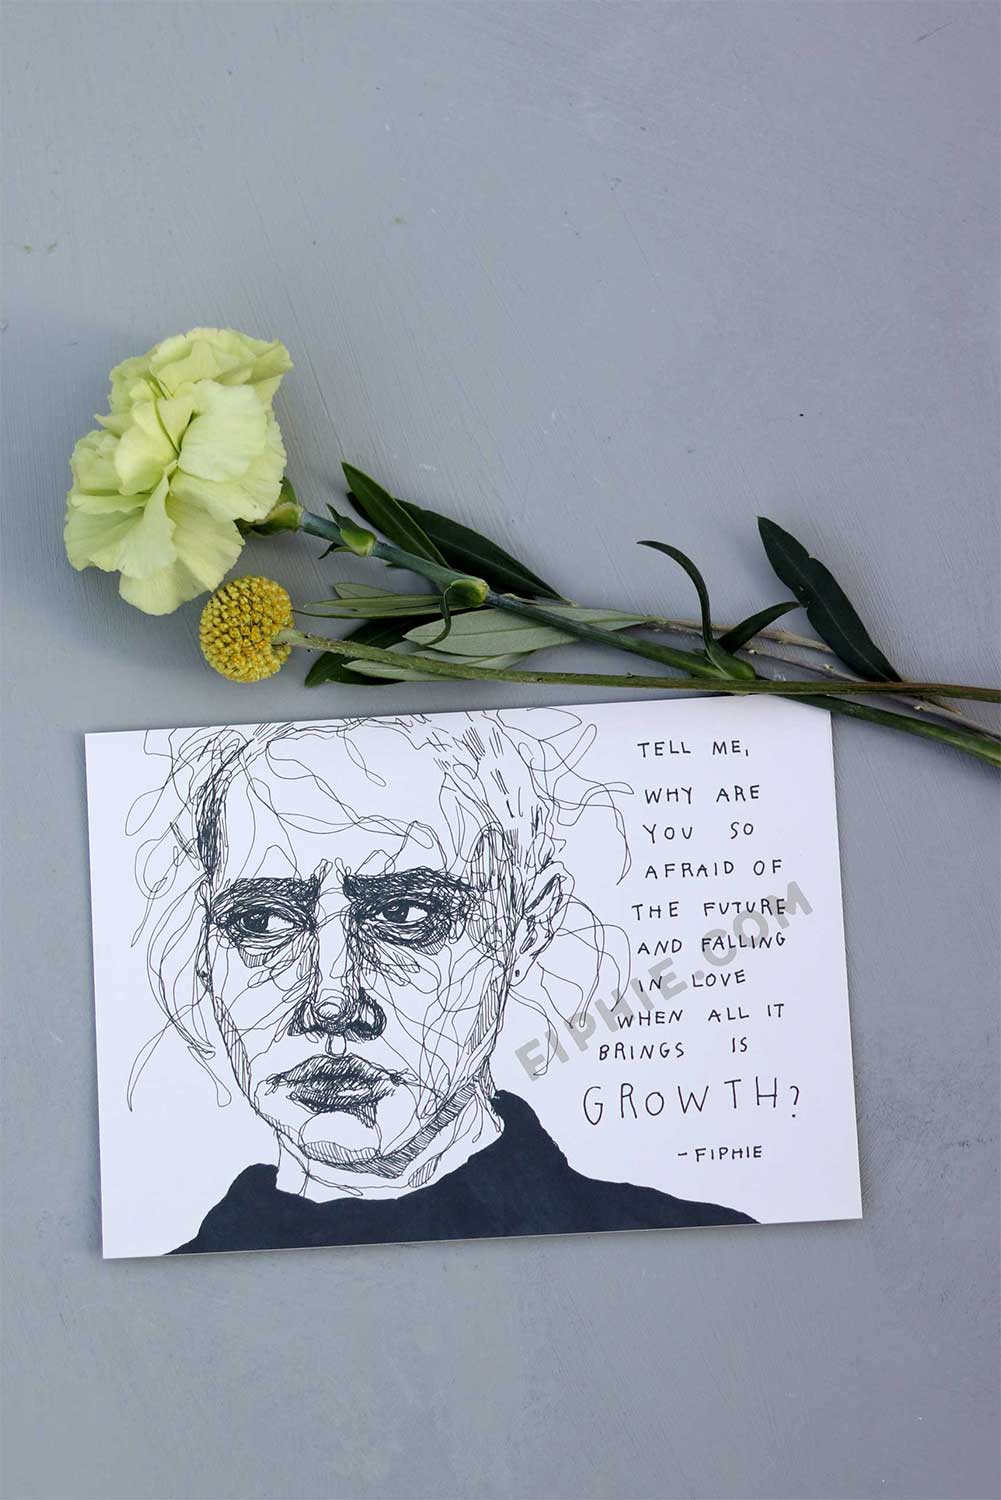 TELL ME,
WHY ARE
YOU SO
AFRAID OF
THE FUTURE
AND FALLING
IN LOVE
WHEN ALL IT
BRINGS IS
GROWTH?
-FIPHIE
FIPHIE.COM